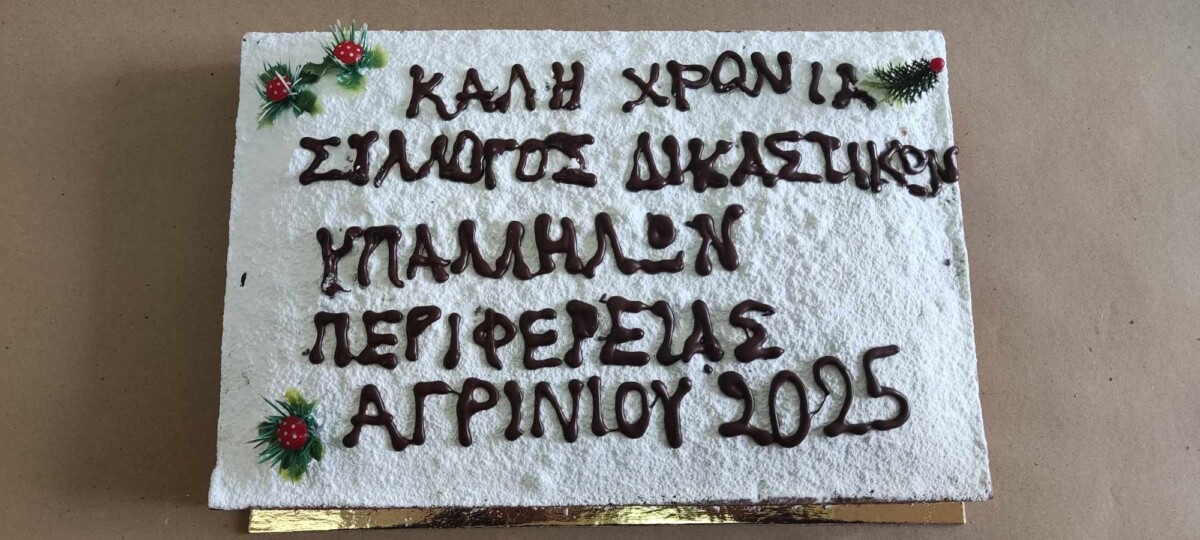 ΚΑΛΗ ΧΡΩΝΙΑ
ΣΥΛΛΟΓΟΣ ΔΙΚΑΣΤΙΚΩΝ
ΥΠΑΛΛΗΛΩΝ
ΠΕΡΙΦΕΡΕΙΑΣ
ΑΓΡΙΝΙΟΥ 2025